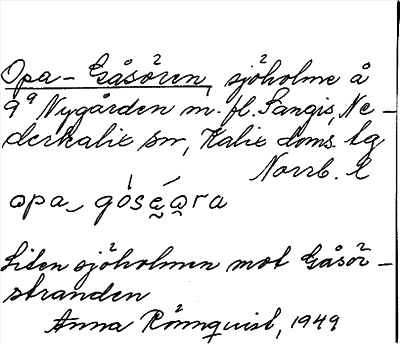 Opa-Gåsören, sjöholme å
gå Nygården m. fl. Sangis, Ne-
derkalix sn, Kalix doms. lg
Norrb. l
opa, góseara
Liten sjöholmen mot Gåsör-
stranden
Anna Rönnquist, 1949